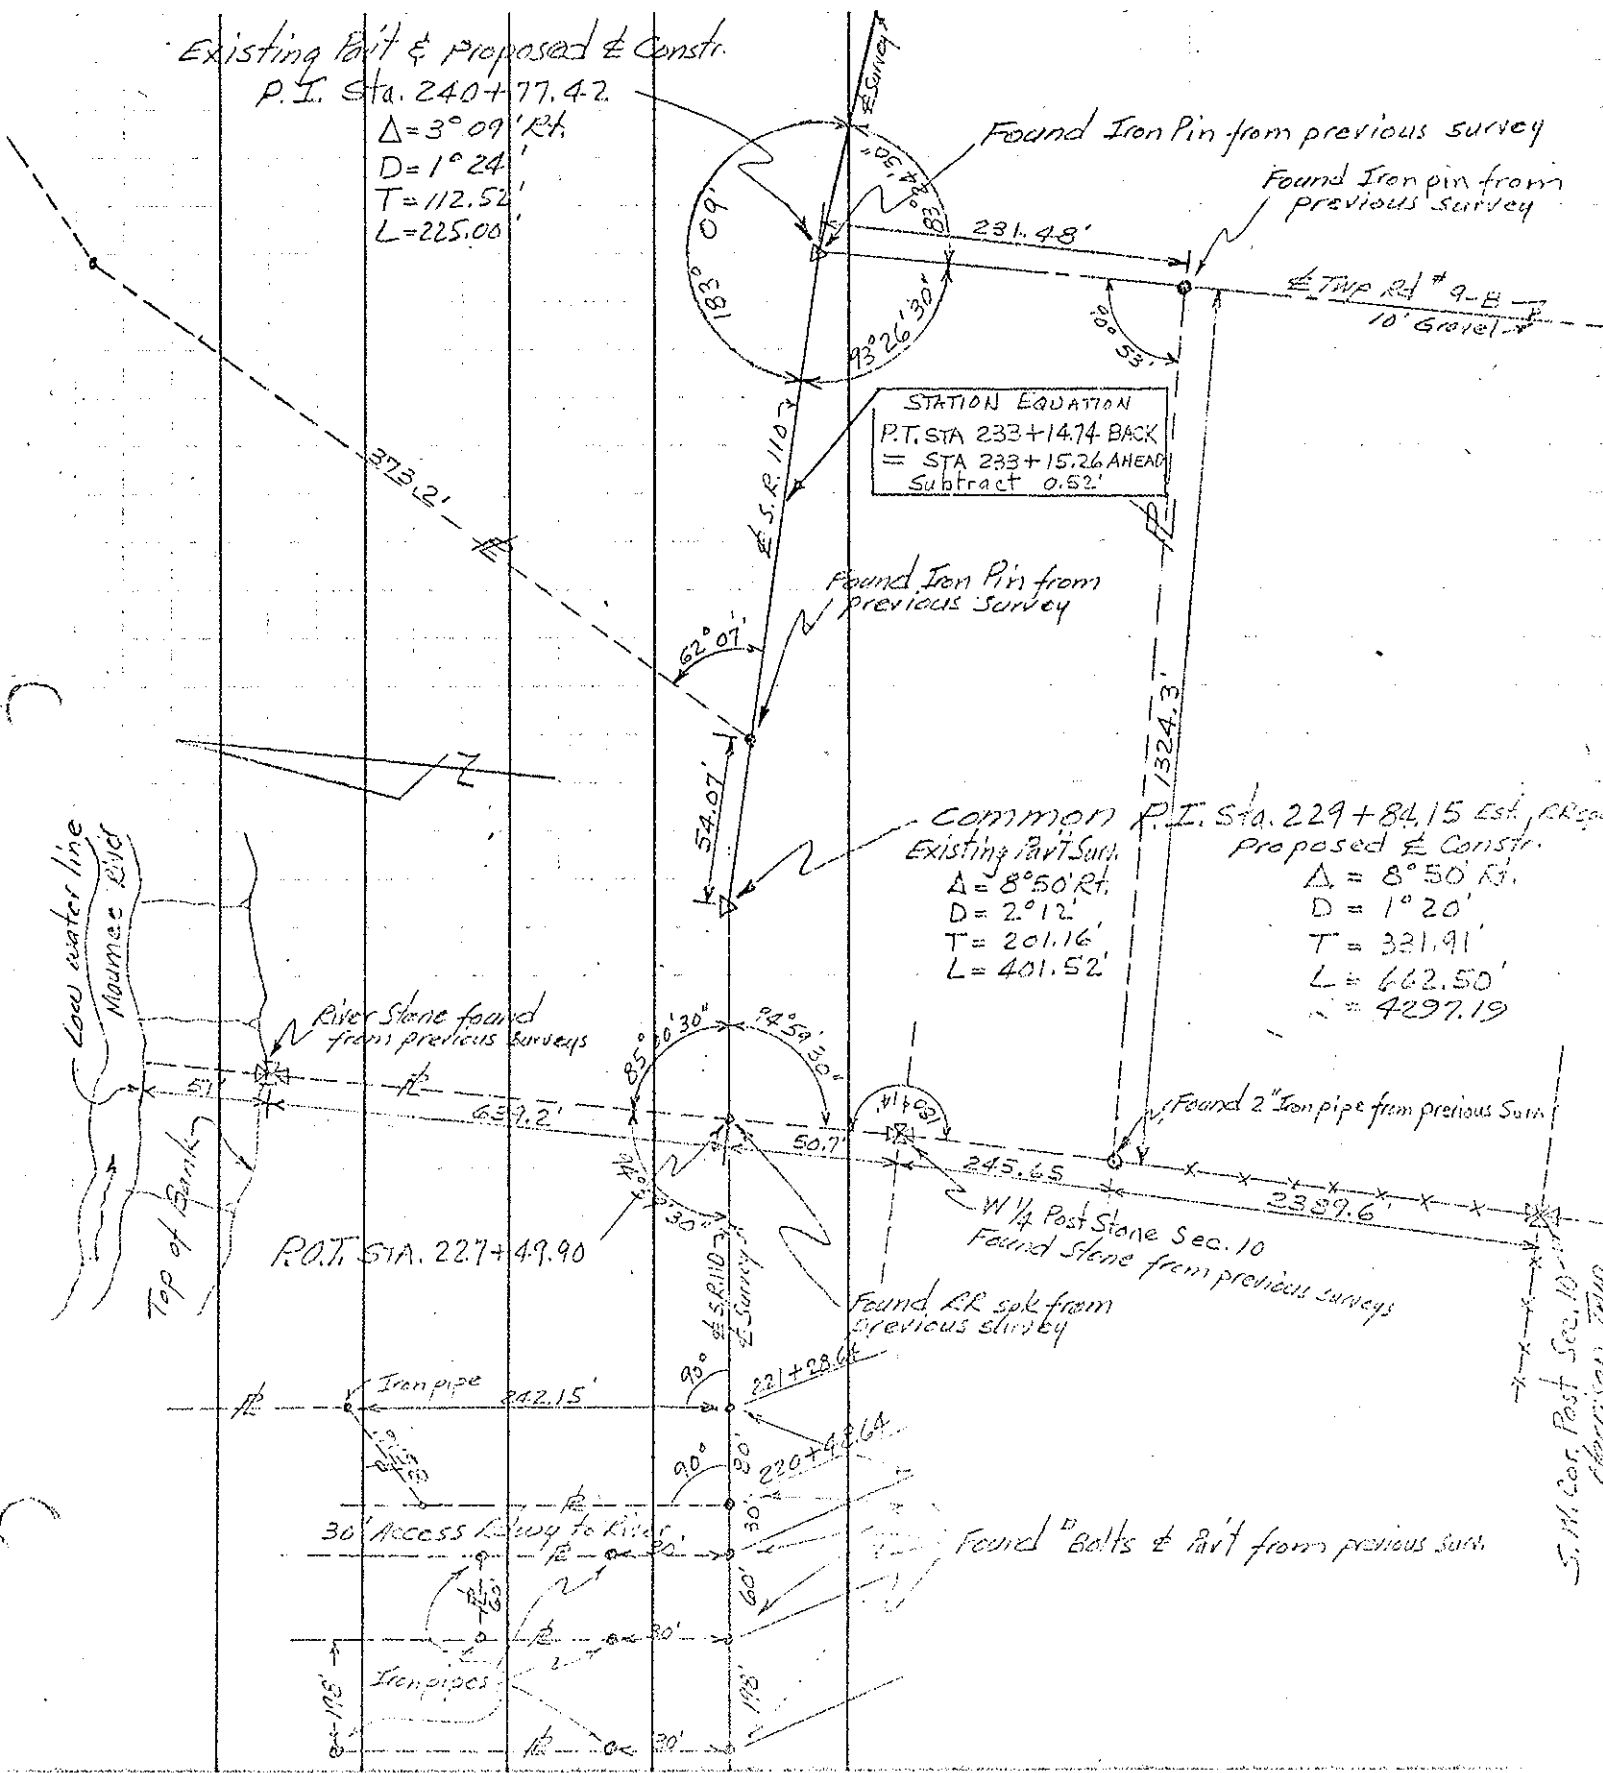 Existing Pav't & Proposed ℄ Constr.
P.I. Sta. 240+77.42
Δ=3°09' Rt.
D=1°24'
T=112.52'
L=225.00'
℄ Survey
Found Iron Pin from previous survey
Found Iron pin from
previous survey
83°24'30"
231.48'
183° 09'
93°26'30"
90° 53'
℄ Twp Rd # 9-B
10' Gravel
STATION EQUATION
P.T. STA 233+14.74 BACK
= STA 233+15.26 AHEAD
Subtract 0.52'
℄ S.R. 110
373.2'
Found Iron Pin from
previous survey
62°07'
1324.3'
54.07'
Common P.I. Sta. 229+84.15 Est.
Existing Pav't Surv.
Δ = 8°50' Rt.
D = 2°12'
T = 201.16'
L = 401.52'
Proposed ℄ Constr.
Δ = 8°50' Rt.
D = 1°20'
T = 331.91'
L = 662.50'
= 4297.19
Low water line
Maumee River
River Stone found
from previous surveys
84°59'30"
51'
639.2'
50.7'
245.65
2389.6'
Found 2" Iron pipe from previous Surv.
Top of Bank
W 1/4 Post Stone Sec. 10
Found Stone from previous surveys
P.O.T. STA. 227+49.90
℄ S.R. 110
℄ Survey
Found RR spk from
previous survey
S.W. Cor. Post Sec. 10
Harrison Twp
Iron pipe
242.15'
90°
221+28.64
90°
80'
220+48.64
30' Access Rdwy to River
30'
30'
Found Bolts ℄ Pav't from previous surv.
60'
60'
30'
Iron pipes
198'
198'
30'